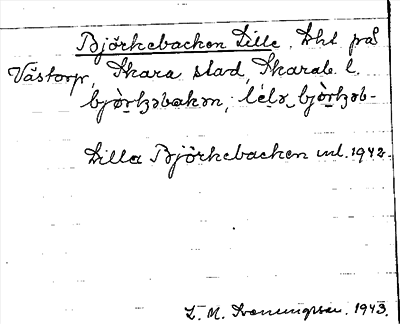 Björkebacken Lille, Lht på
Västorp, Skara stad, Skarab. l.
bjò̩rkəbakən, lélə bjò̩rkəb-
Lilla Björkebacken ml. 1942.
1943.